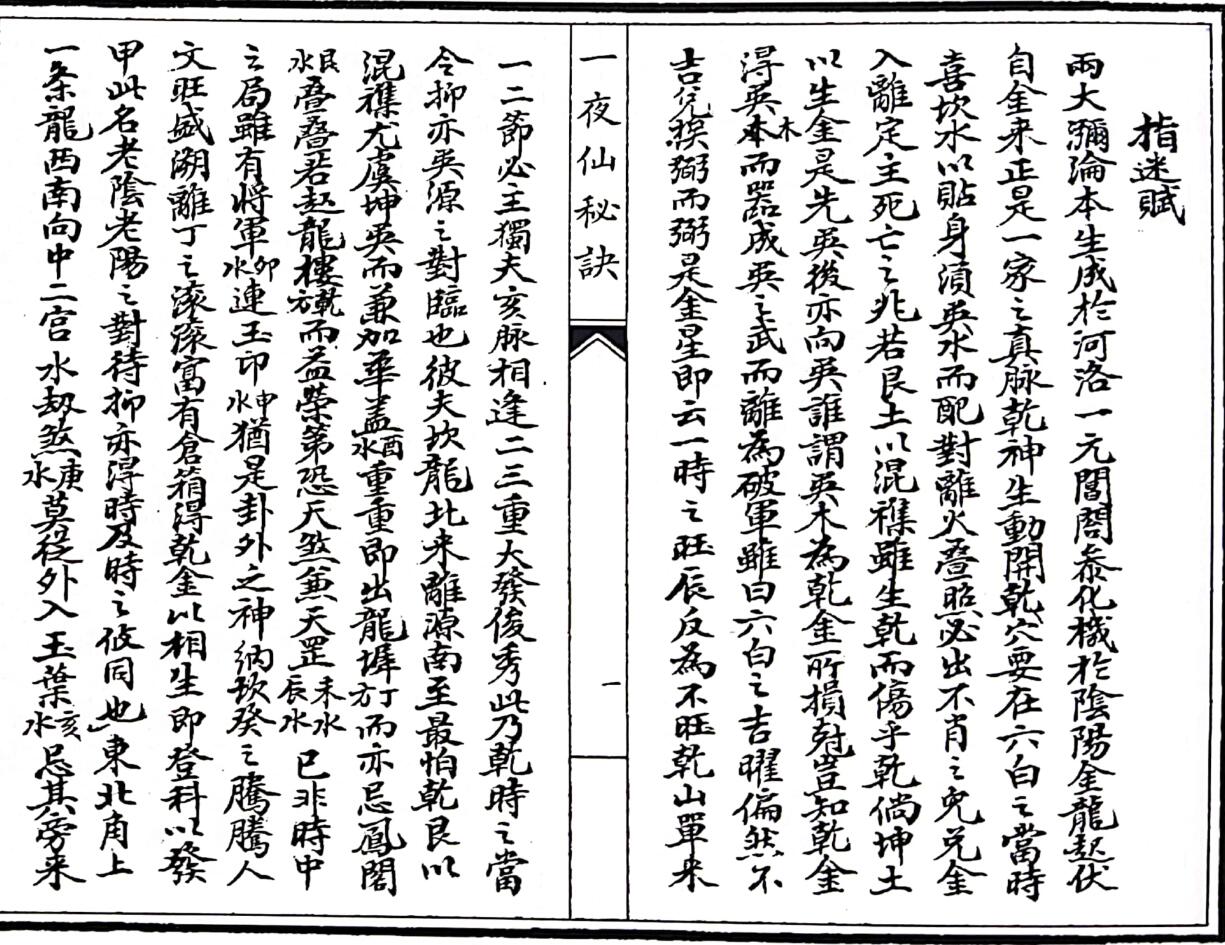 指迷賦
兩大彌淪本生成於河洛一元闔闢叅化機於陰陽金龍起伏
自金来正是一家之真脉乾神生動開乾穴要在六白之當時
喜坎水以貼身須巽水而配對離火疊照必出不肖之兒兌金
入離定主死亡之兆若艮土以混襍雖生乾而傷乎乾倘坤土
以生金是先巽後亦向巽誰謂巽木為乾金所損尅豈知乾金
淂巽本木而器成巽之武而離為破軍雖曰六白之吉曜偏然不
吉兌揆弼而弼是金星即云一時之旺辰反為不旺乾山單来
一夜仙秘訣
一
一二節必主獨夫亥脉相逢二三重大發俊秀此乃乾時之當
令抑亦巽源之對臨也彼夫坎龍北来離源南至最怕乾艮以
混襍尤虞坤巽而兼加華盖酉水重重即出龍墀丁方而亦忌鳳閣
艮水疊疊若起龍樓乾方而益榮第恐天煞兼天罡未水辰水已非時中
之局雖有将軍卯水連玉印申水猶是卦外之神納坎癸之騰騰人
文旺盛溯離丁之滚滚富有倉箱得乾金以相生即登科以發
甲此名老陰老陽之對待抑亦淂時及時之攸同也東北角上
一条龍西南向中二宫水刼煞庚水莫從外入玉葉亥水忌其旁来